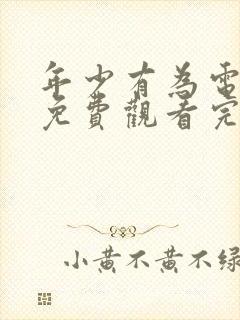 年少有為電
免費觀看完
小黃不黃不綠